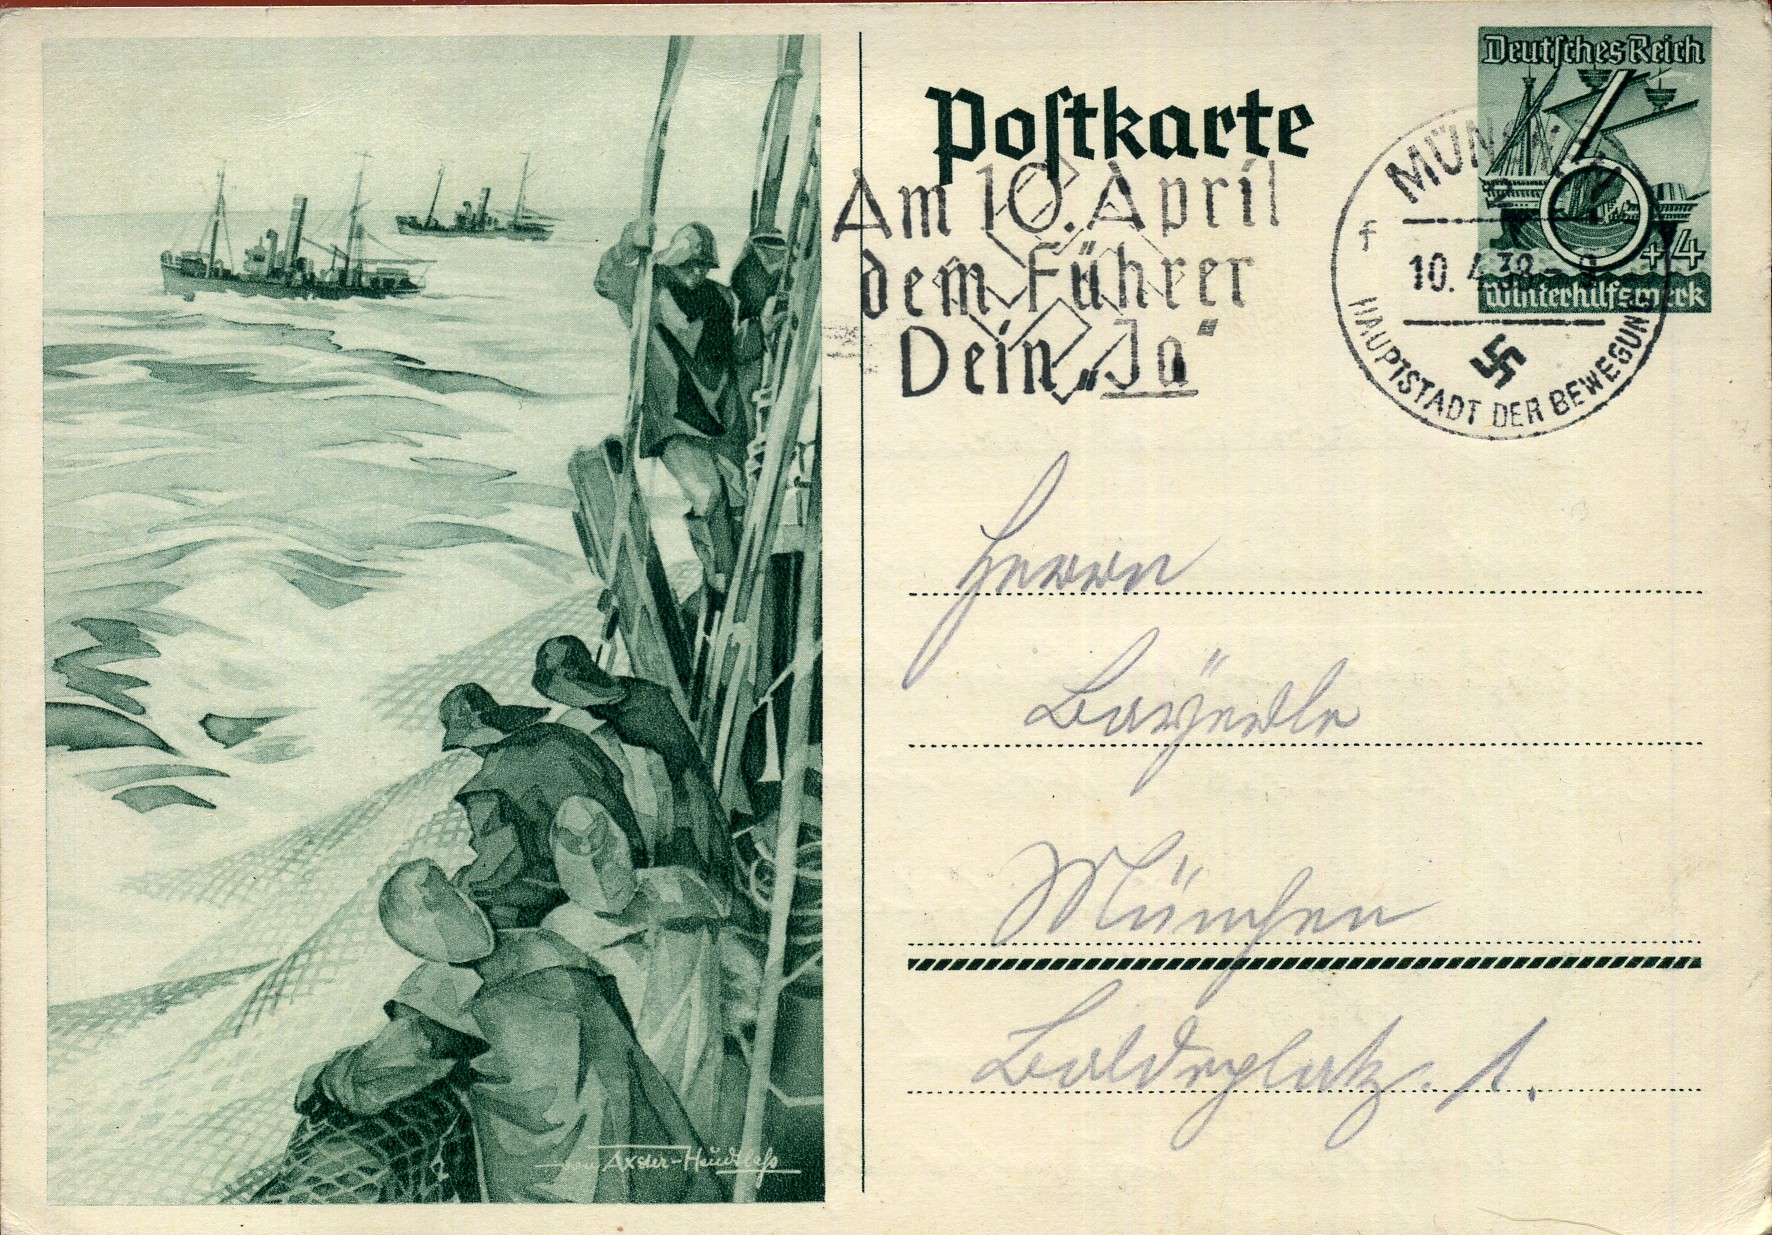 Deutsches Reich
6
+4
Winterhilfswerk
Postkarte
Am 10. April
dem Führer
Dein „Ja“
MÜNCHEN
2
f
10.4.38-9
HAUPTSTADT DER BEWEGUNG
Herrn
Bayerle
München
Baldeplatz. 1.
von Axster-Heudtlaß